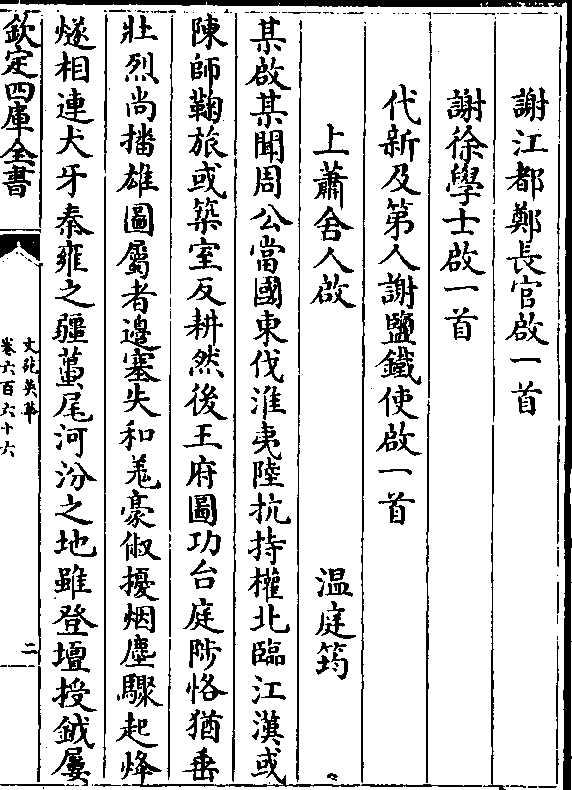 謝江都鄭長官啟一首
謝徐學士啟一首
代新及第人謝鹽鐵使啟一首
上蕭舍人啟 温庭筠
某啟某聞周公當國東伐淮夷陸抗持權北臨江漢或
陳師鞠旅或築室反耕然後王府圖功台庭陟恪猶垂
壯烈尚播雄圖屬者邊塞失和羌豪俶擾烟塵驟起烽
燧相連犬牙秦雍之疆蠆尾河汾之地雖登壇授鉞屢
欽定四庫全書
文苑英華
卷六百六十六
二